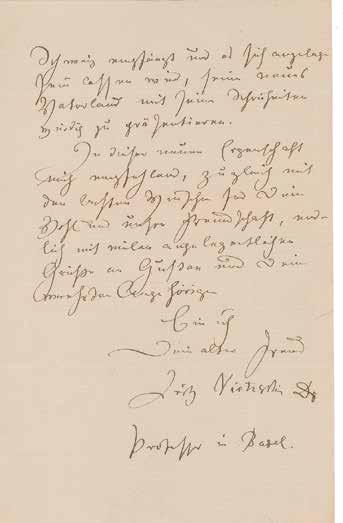 Schweiz empfängt und es sich angelegen
sein lassen wird, seine neues
Vaterland mit seinen Schönheiten
würdig zu präsentieren.
In dieser neuen Eigenschaft
mich empfehlend, zugleich mit
den besten Wünschen für Dein
Wohl und unsre Freundschaft, end-
lich mit vielen angelegentlichen
Grüßen an Gustav und Deine
Angehörigen
bin ich
Dein alter Freund
Fritz Nietzsche Dr
Professor in Basel.